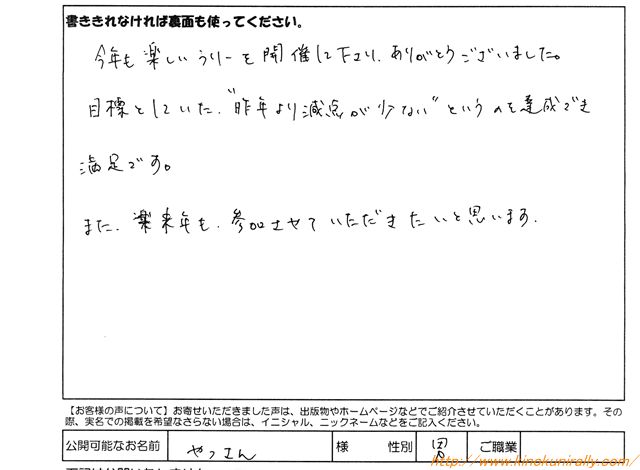 書ききれなければ裏面も使ってください。
今年も楽しいラリーを開催して下さり、ありがとうございました。
目標としていた、"昨年より減点が少ない"というのも達成でき
満足です。
また、来年も、参加させていただきたいと思います。
【お客様の声について】お寄せいただきました声は、出版物やホームページなどでご紹介させていただくことがあります。その
際、実名での掲載を希望なさらない場合は、イニシャル、ニックネームなどをご記入ください。
公開可能なお名前 やっさん 様 性別 男 ご職業
http://www.hinokunirally.com/